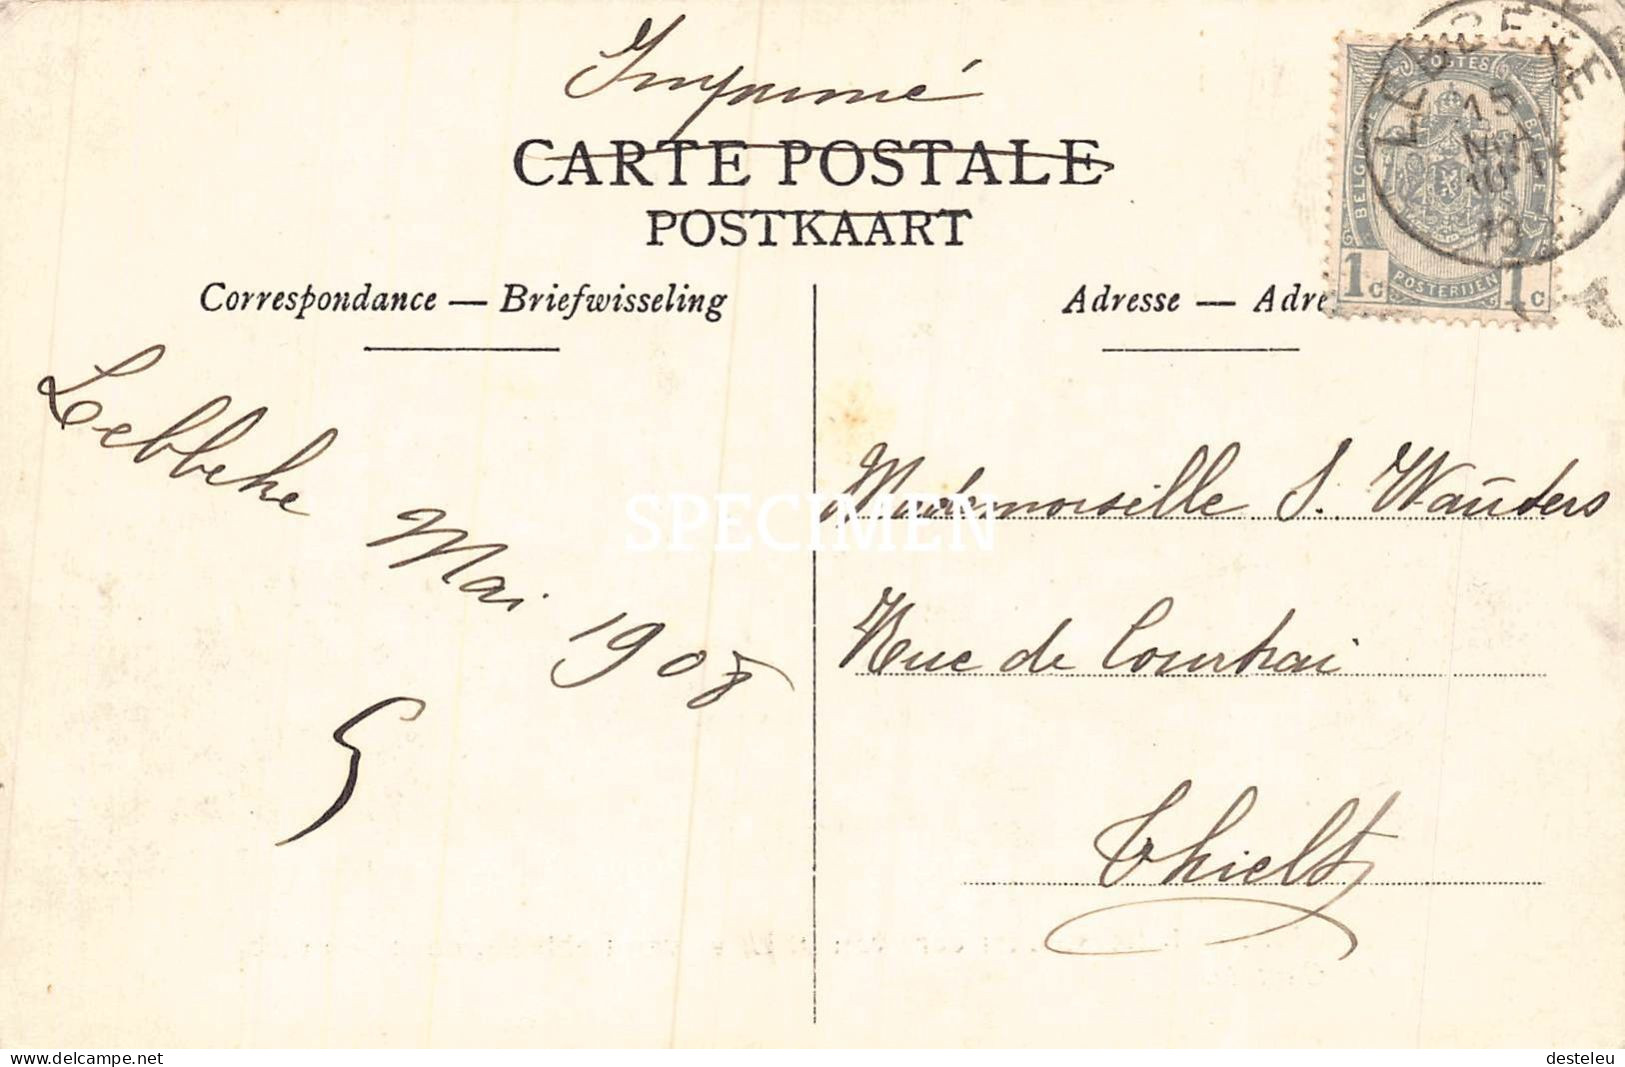 Imprimé
CARTE POSTALE
POSTKAART
Correspondance — Briefwisseling
Adresse — Adre
POSTES
BELGIQUE
BELGIE
POSTERIJEN
1c 1c
LEBBEKE
15
10-11
19
Lebbeke
Mai
1908
Mademoiselle S. Wauters
Rue de Courtrai
Thielt
SPECIMEN
www.delcampe.net
desteleu